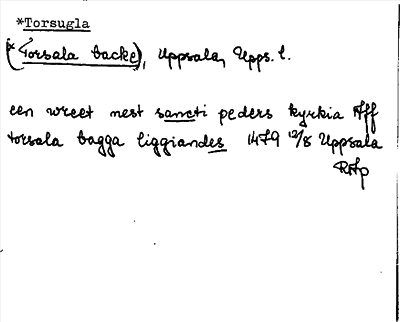 *Torsugla
(*Torsala backe), Uppsala, Upps. l.
een wreet nest sancti peders kyrkia Aff
torsala bagga liggiandes 1479 12/8 Uppsala
RAp